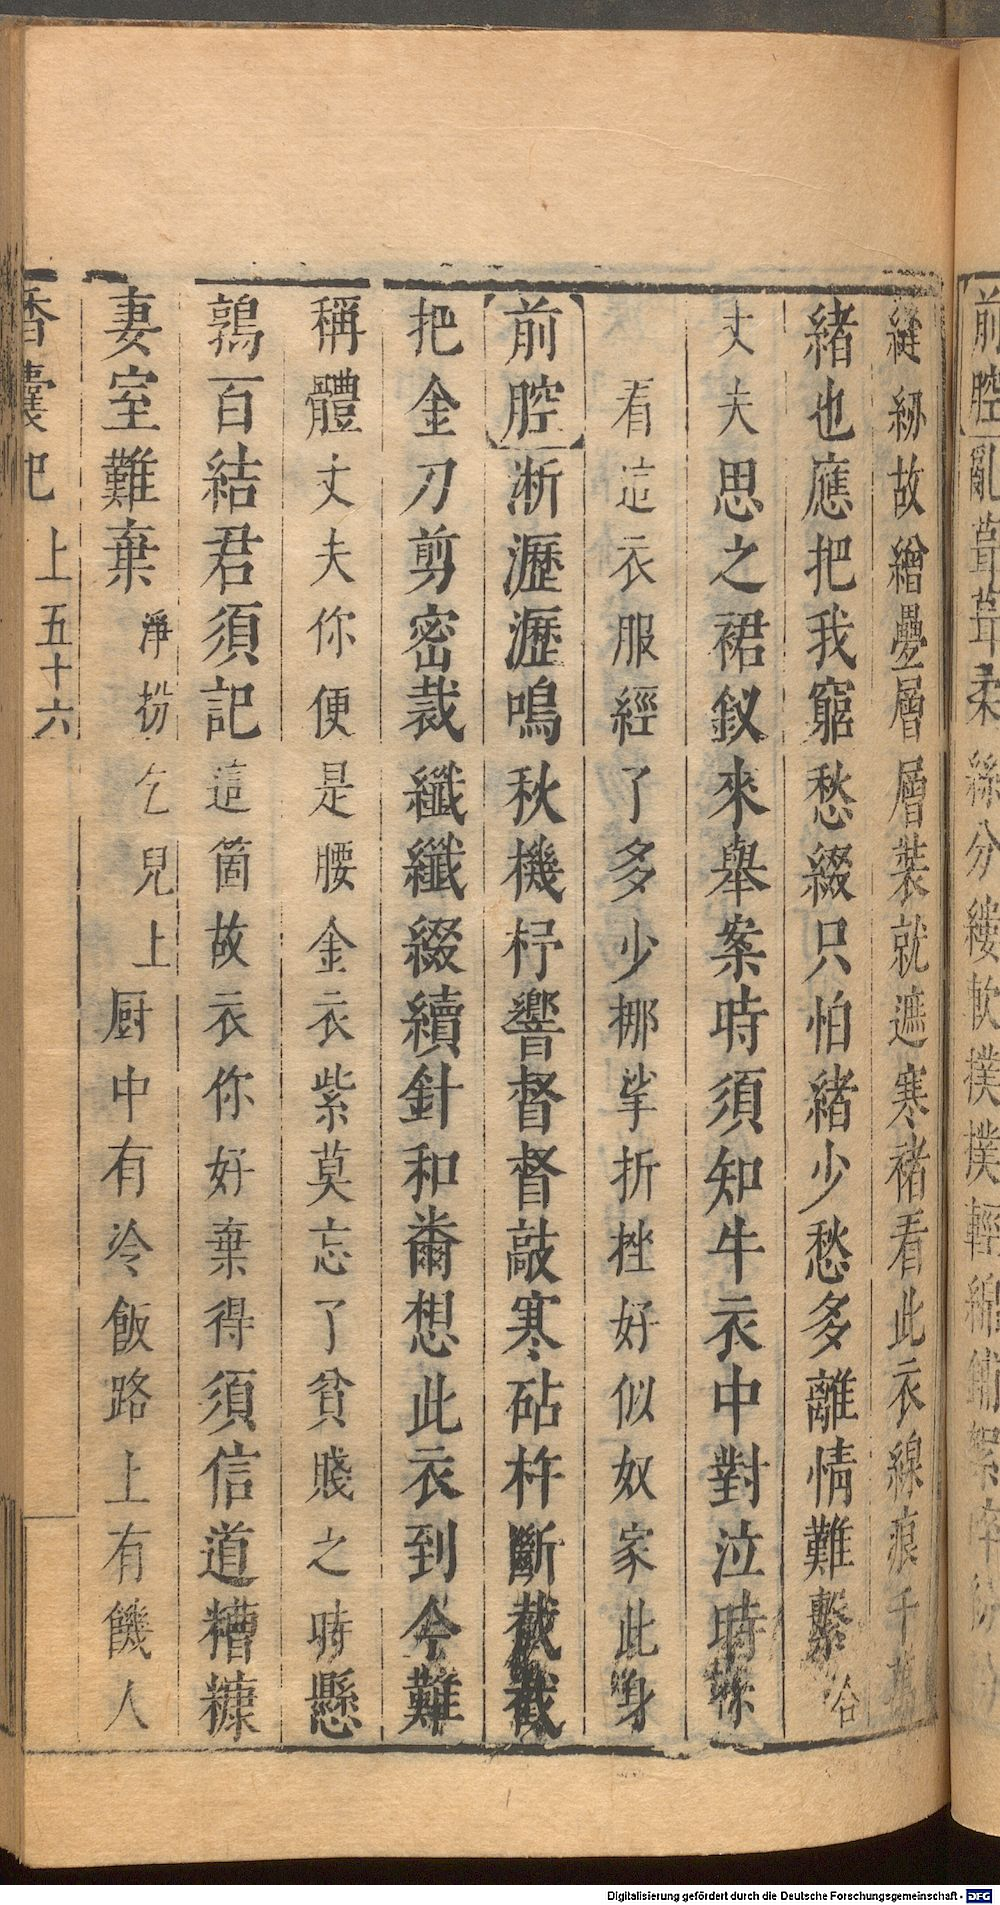 前腔亂葺葺柔絲分縷軟撲撲輕綿鋪絮
縫紉故繒疊層層裝就遮寒褚看此衣線痕千
緒也應把我窮愁綴只怕緒少愁多離情難繫合
丈夫思之裙釵來舉案時須知牛衣中對泣時
看這衣服經了多少挪挲折挫好似奴家此身
前腔淅瀝瀝鳴秋機杼響督督敲寒砧杵斷截截
把金刀剪密裁纖纖綴續針和黹想此衣到今難
稱體丈夫你便是腰金衣紫莫忘了貧賤之時懸
鶉百結君須記這箇故衣你好棄得須信道糟糠
妻室難棄淨扮乞兒上厨中有冷飯路上有饑人
香囊記上五十六
Digitalisierung gefördert durch die Deutsche Forschungsgemeinschaft - DFG